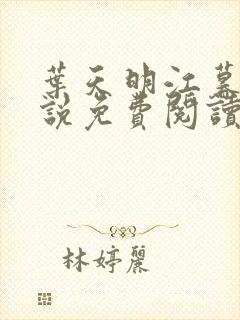 葉天明江慕
說免費閱讀
林婷麗